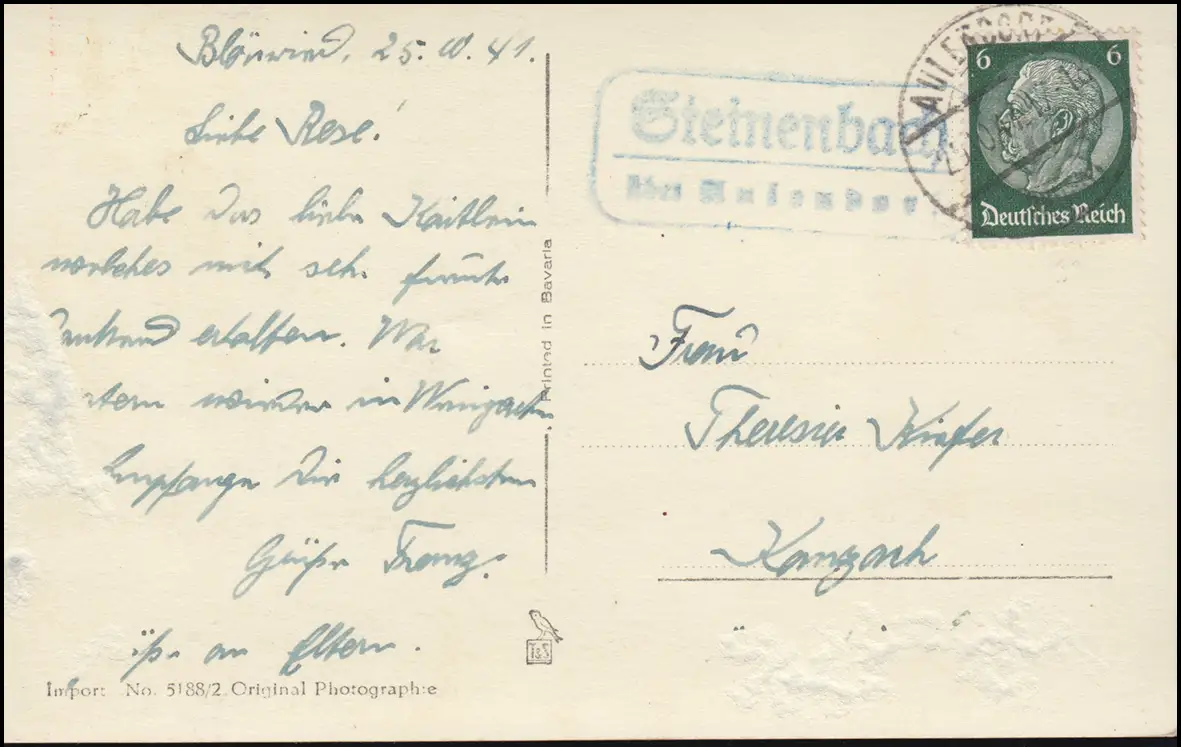 25. IV. 41.
Liebe Rese!
Habe das liebe Kärtlein
welches mit seh. freute
dankend erhalten. War
wieder in
Empfange Die herzlichsten
Grüße Franz.
an Eltern.
Import No. 5188/2 Original Photographie
Printed in Bavaria
T&S
Steinenbach
über Aulendorf
AULENDORF
6 6
Deutsches Reich
Frau
Theresia Kiefer
Kanzach